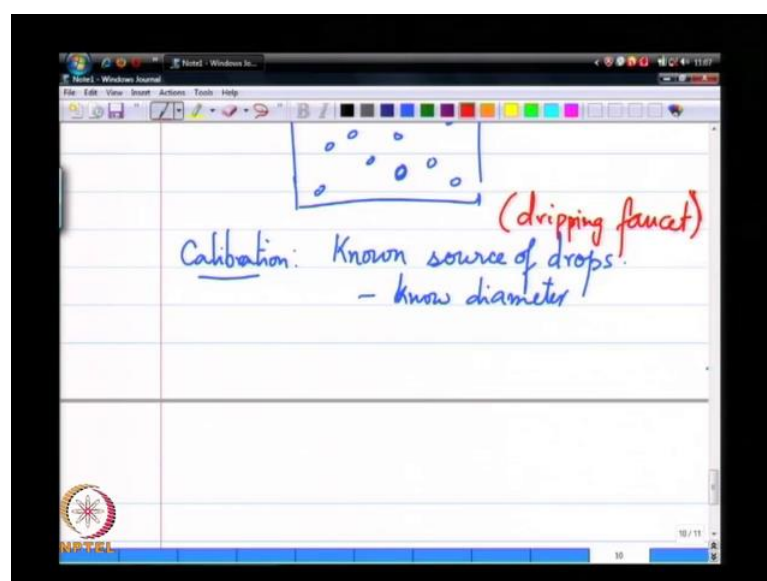 Note1 - Windows Jo...
11:07
Note1 - Windows Journal
File Edit View Insert Actions Tools Help
B I
(dripping faucet)
Calibration: Known source of drops.
- know diameter
10 / 11
10
NPTEL